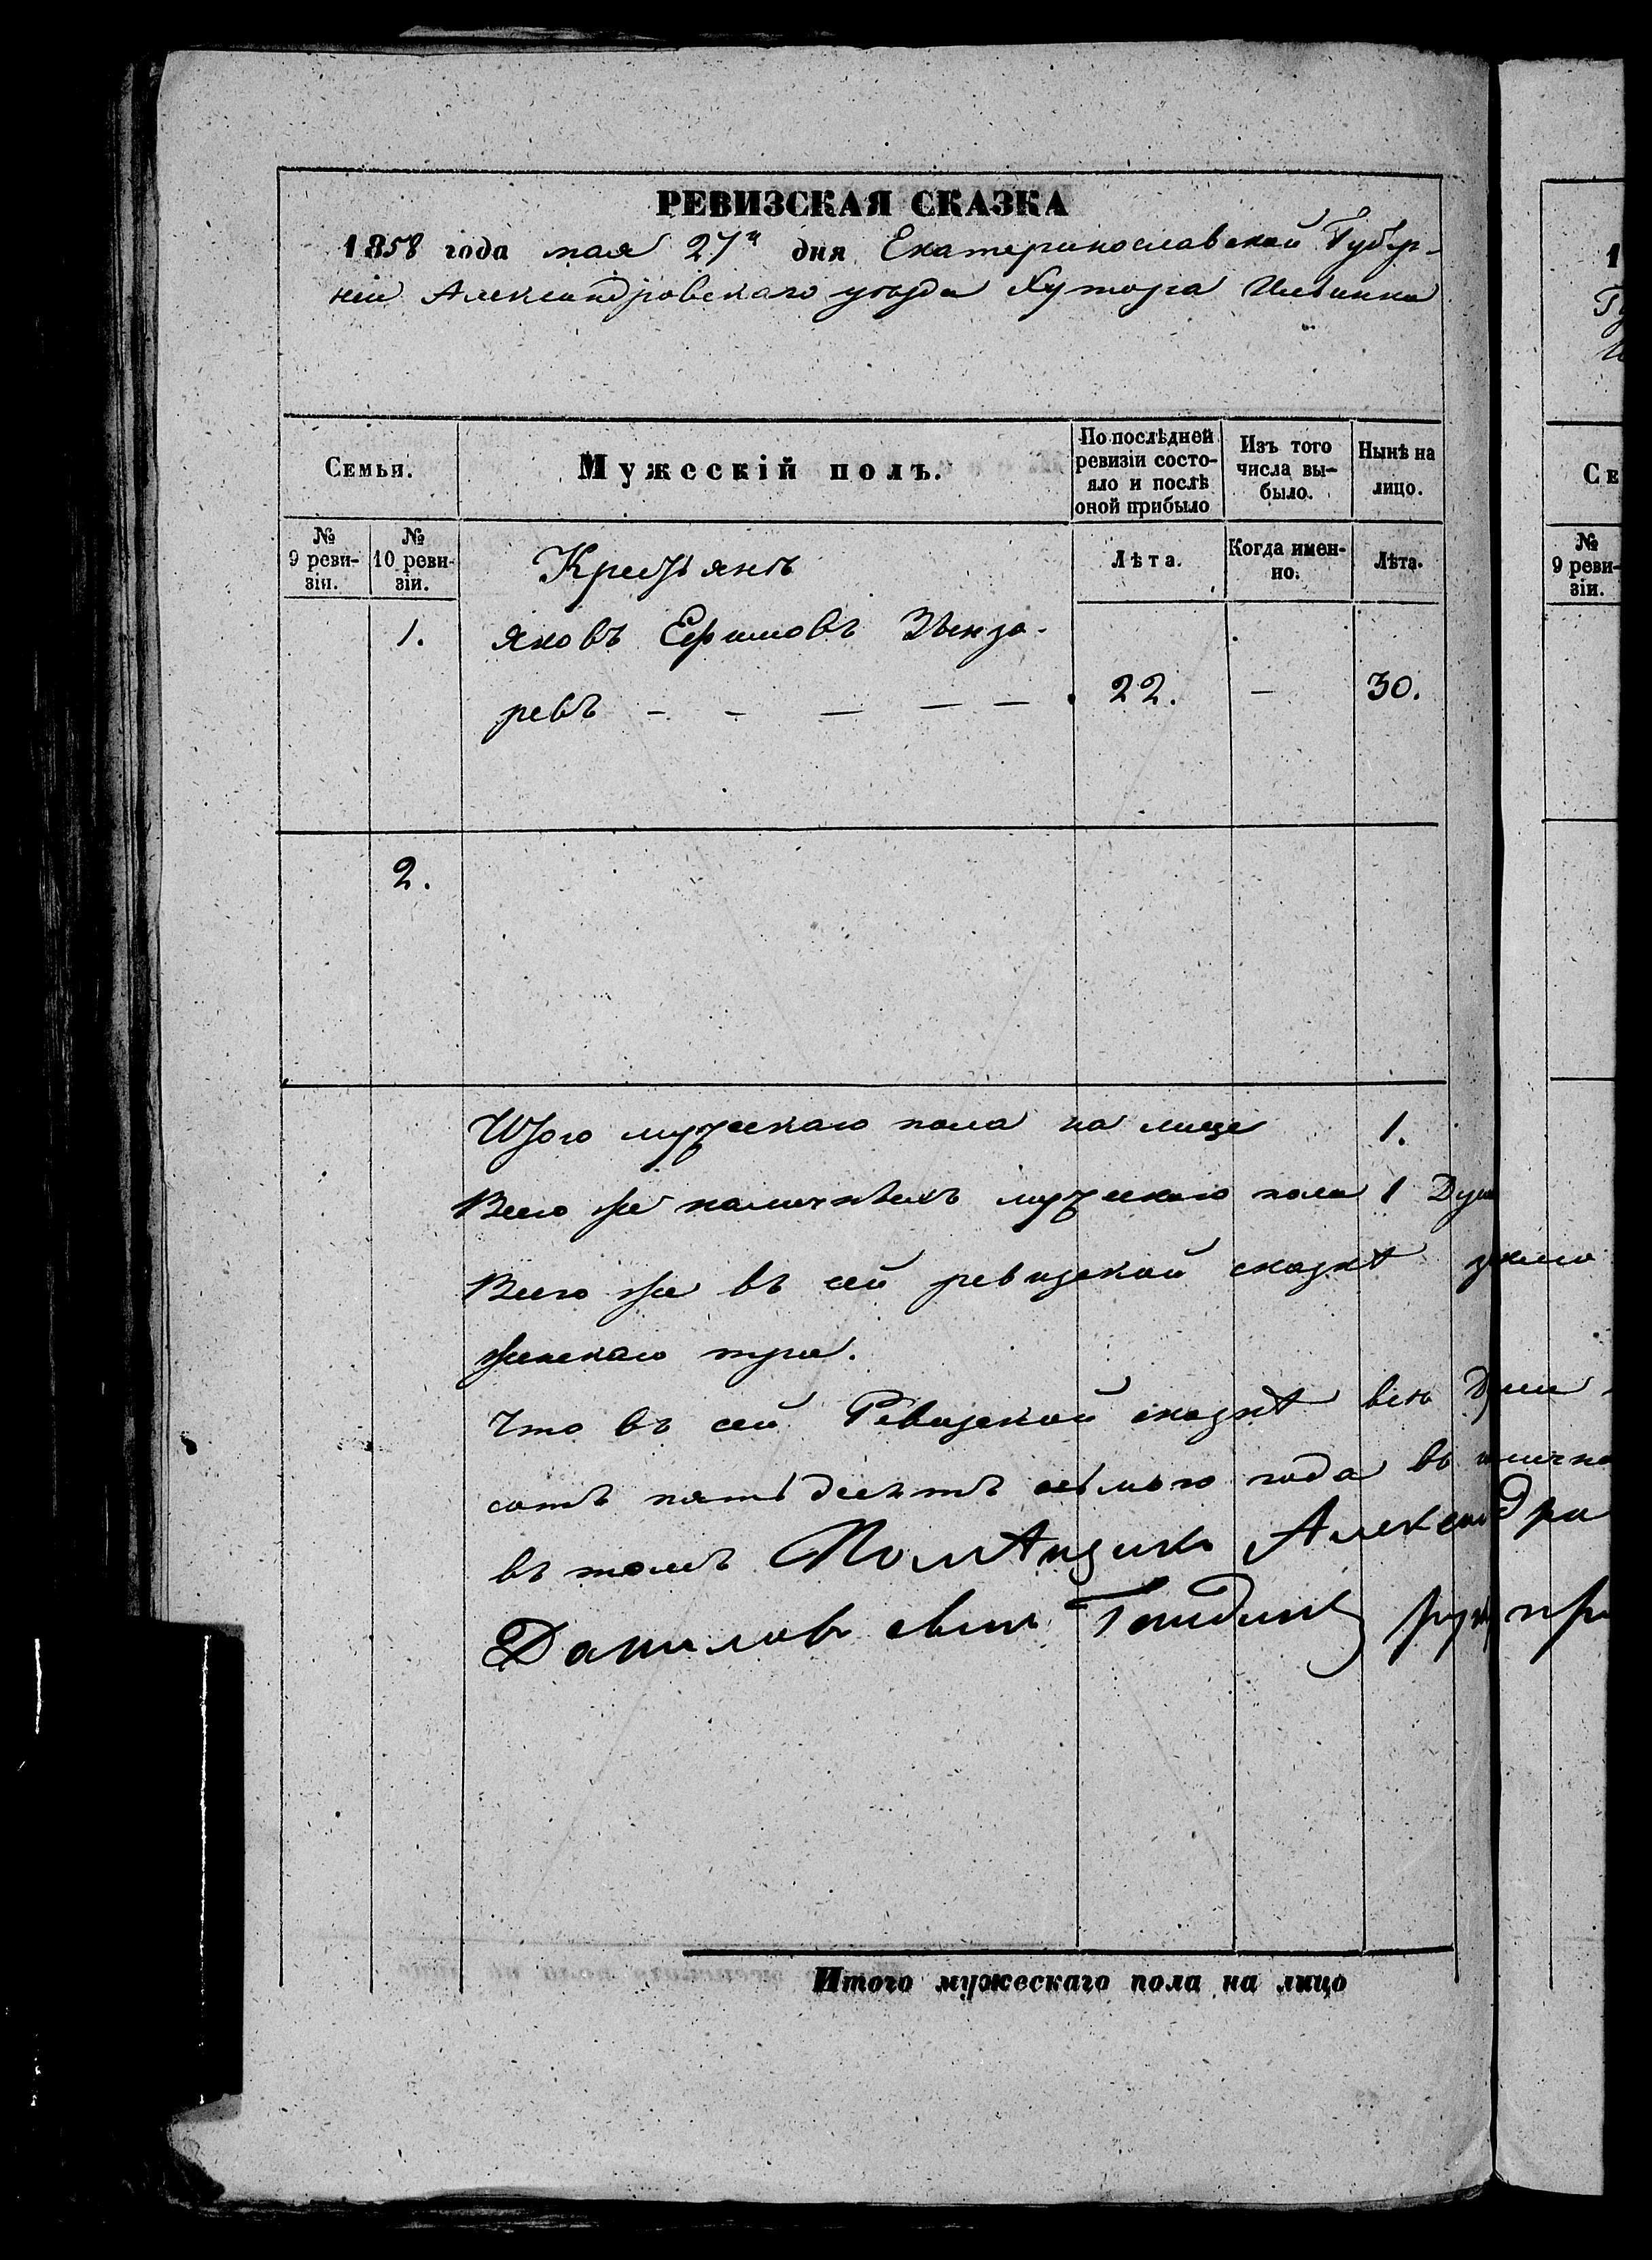 РЕВИЗСКАЯ СКАЗКА
1858 года мая 27го дня Екатеринославской Губер-
ніи Александровскаго уѣзда Хутора Ильинки
Семьи.
Мужескій полъ.
По послѣдней ревизіи состо-
яло и послѣ
оной прибыло
Изъ того
числа вы-
было.
Нынѣ на
лицо.
№
9 реви-
зіи.
№
10 реви-
зіи.
Лѣта.
Когда имен-
но.
Лѣта.
Крестьянъ
1. Яковъ Ефимовъ
ревъ — — — — — 22. — 30.
2.
Итого мужескаго пола на лице 1.
Всего же наличныхъ мужескаго пола 1
Всего же въ сей ревизской сказкѣ
женскаго три.
Что въ сей Ревизской сказкѣ всѣ
сотъ пятьдесятъ седьмого года
въ томъ Помѣщикъ Александра
Даниловъ сынъ
Итого мужескаго пола на лицо
1
Се
№
9 реви-
зіи.